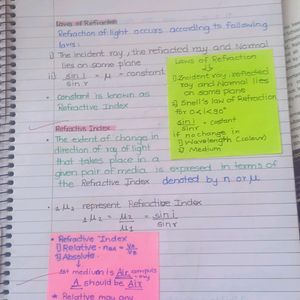 Laws of Refraction
Refraction of light occurs according to following
laws:
i) The incident ray, the refracted ray and Normal
lies on same plane
ii) sin i / sin r = μ = constant
• constant is known as
Refractive Index
Laws of Refraction
i) Incident ray, refracted
ray and Normal lies
on same plane
ii) Snell's law of Refraction
for 0<i<90°
sin i / sin r = constant
if no change in
i) Wavelength (colour)
ii) Medium
Refractive Index
• The extent of change in
direction of ray of light
that takes place in a
given pair of media is expressed in terms of
the Refractive Index denoted by n or μ
• 1μ2 represent Refractive Index
1μ2 = μ2 / μ1 = sin i / sin r
• Refractive Index
i) Relative - nBA = VA / VB
ii) Absolute
1st medium is Air
A should be Air
* Relative may any